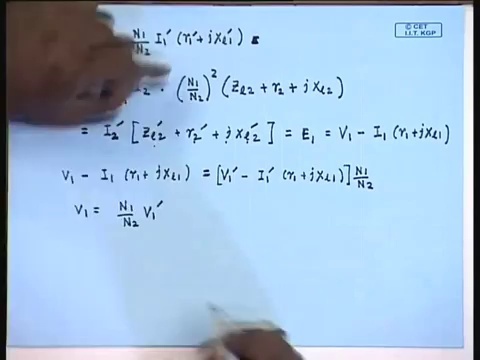 © CET
I.I.T. KGP
N1/N2 I1′ (r1′ + jXl1′)
· (N1/N2)² (Zl2 + r2 + j Xl2)
= I2′ [Zl2′ + r2′ + j Xl2′] = E1 = V1 − I1 (r1 + jXl1)
V1 − I1 (r1 + jXl1) = [V1′ − I1′ (r1 + jXl1)] N1/N2
V1 = N1/N2 V1′